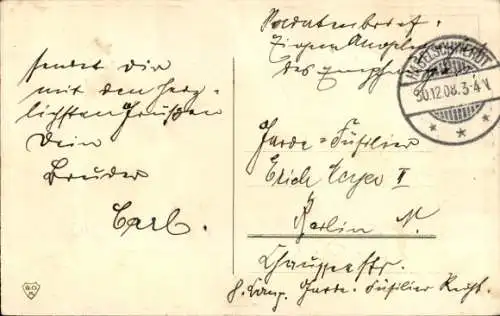 sendet Dir
mit den herz-
lichsten Grüßen
Dein
Bruder
Carl.
Soldatenbrief.
Eigene Angele
des Empfän
INGELSCHIEDT
30.12.08.3-4N.
Garde-Füsilier
Erich II
Berlin N.
Chausseestr.
8. Comp. Garde-Füsilier Regt.